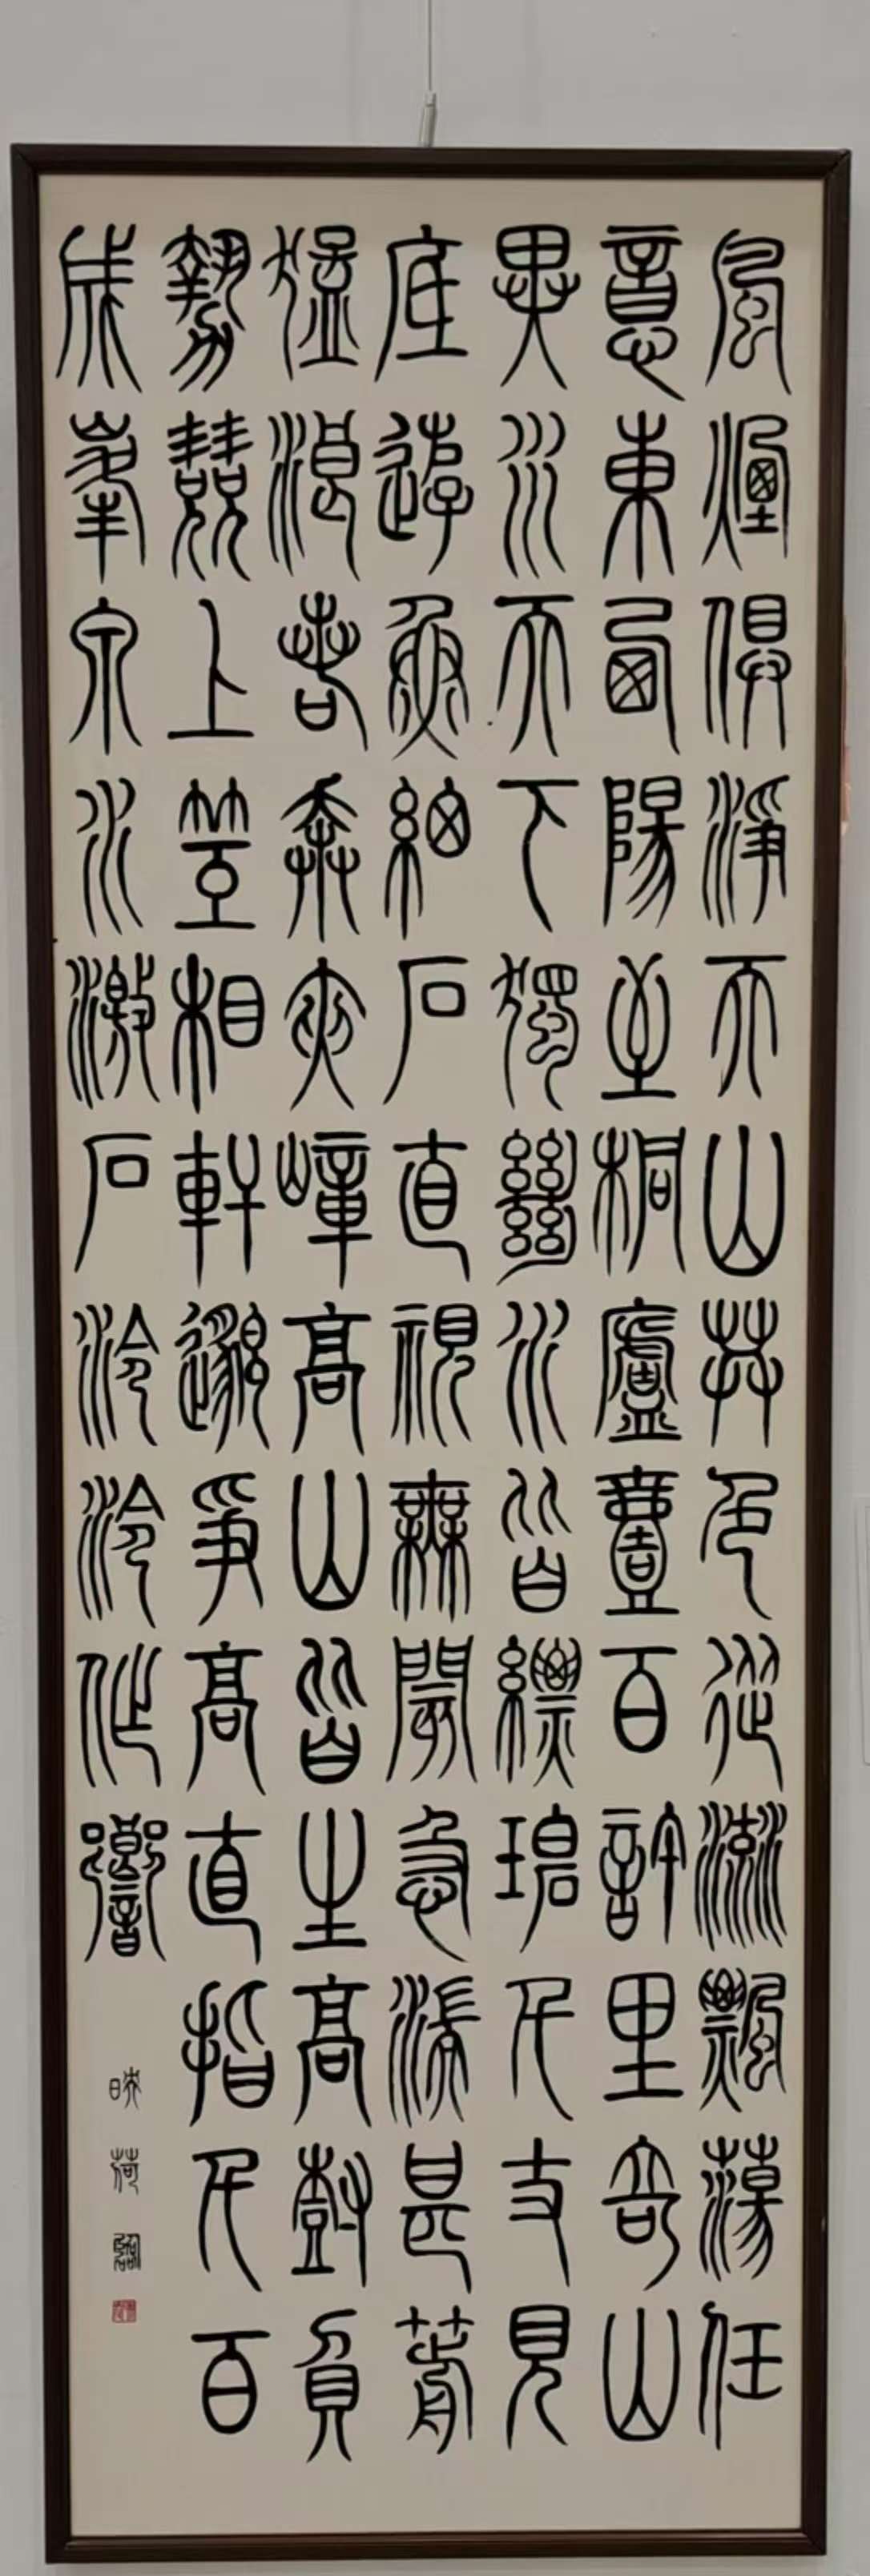 風煙俱淨天山共色從流飄蕩任
意東西陽至桐廬壹百許里奇山
異水天下獨絕水皆縹碧千丈見
底遊魚細石直視無閡急湍甚箭
猛浪若奔夾嶂高山皆生高樹負
勢競上互相軒邈爭高直指千百
成峯泉水激石泠泠作響
映荷